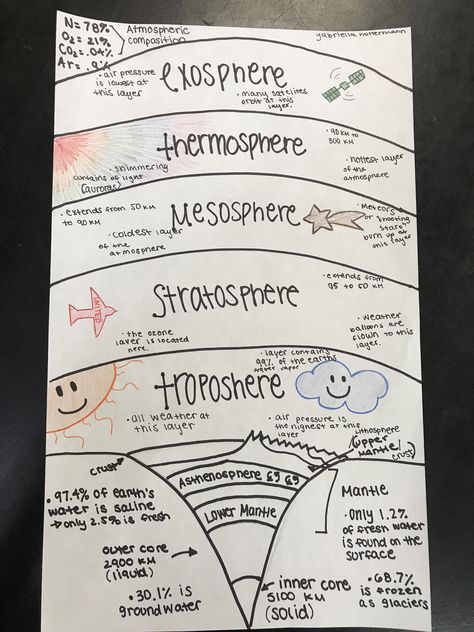 N= 78%
O2 = 21%
CO2 = .04%
Ar = .9%
Atmospheric
composition
gabriella hollermann
exosphere
• air pressure
is lowest at
this layer
• many satelites
orbit at this
layer.
thermosphere
• 90 KM to
300 KM
• shimmering
curtains of light
(auroras)
• hottest layer
of the
atmosphere
Mesosphere
• extends from 50 KM
to 90 KM
• coldest layer
of the
atmosphere
• Meteors
or "shooting
stars"
burn up at
this layer
stratosphere
• extends from
95 to 50 KM
UNITED
• the ozone
layer is located
here.
• weather
balloons are
flown to this
layer.
troposhere
• layer contains
99% of the earths
water vapor
• all weather at
this layer
• air pressure is
the highest at this
layer
Lithosphere
(upper
Mantle/
crust)
crust
Asthenosphere
Lower Mantle
Mantle
• 97.4% of earth's
water is saline
→ only 2.5% is fresh
• Only 1.2%
of fresh water
is found on the
surface
outer core →
2900 KM
(liquid)
inner core
5100 KM
(solid)
• 68.7%
is frozen
as glaciers
• 30.1% is
groundwater